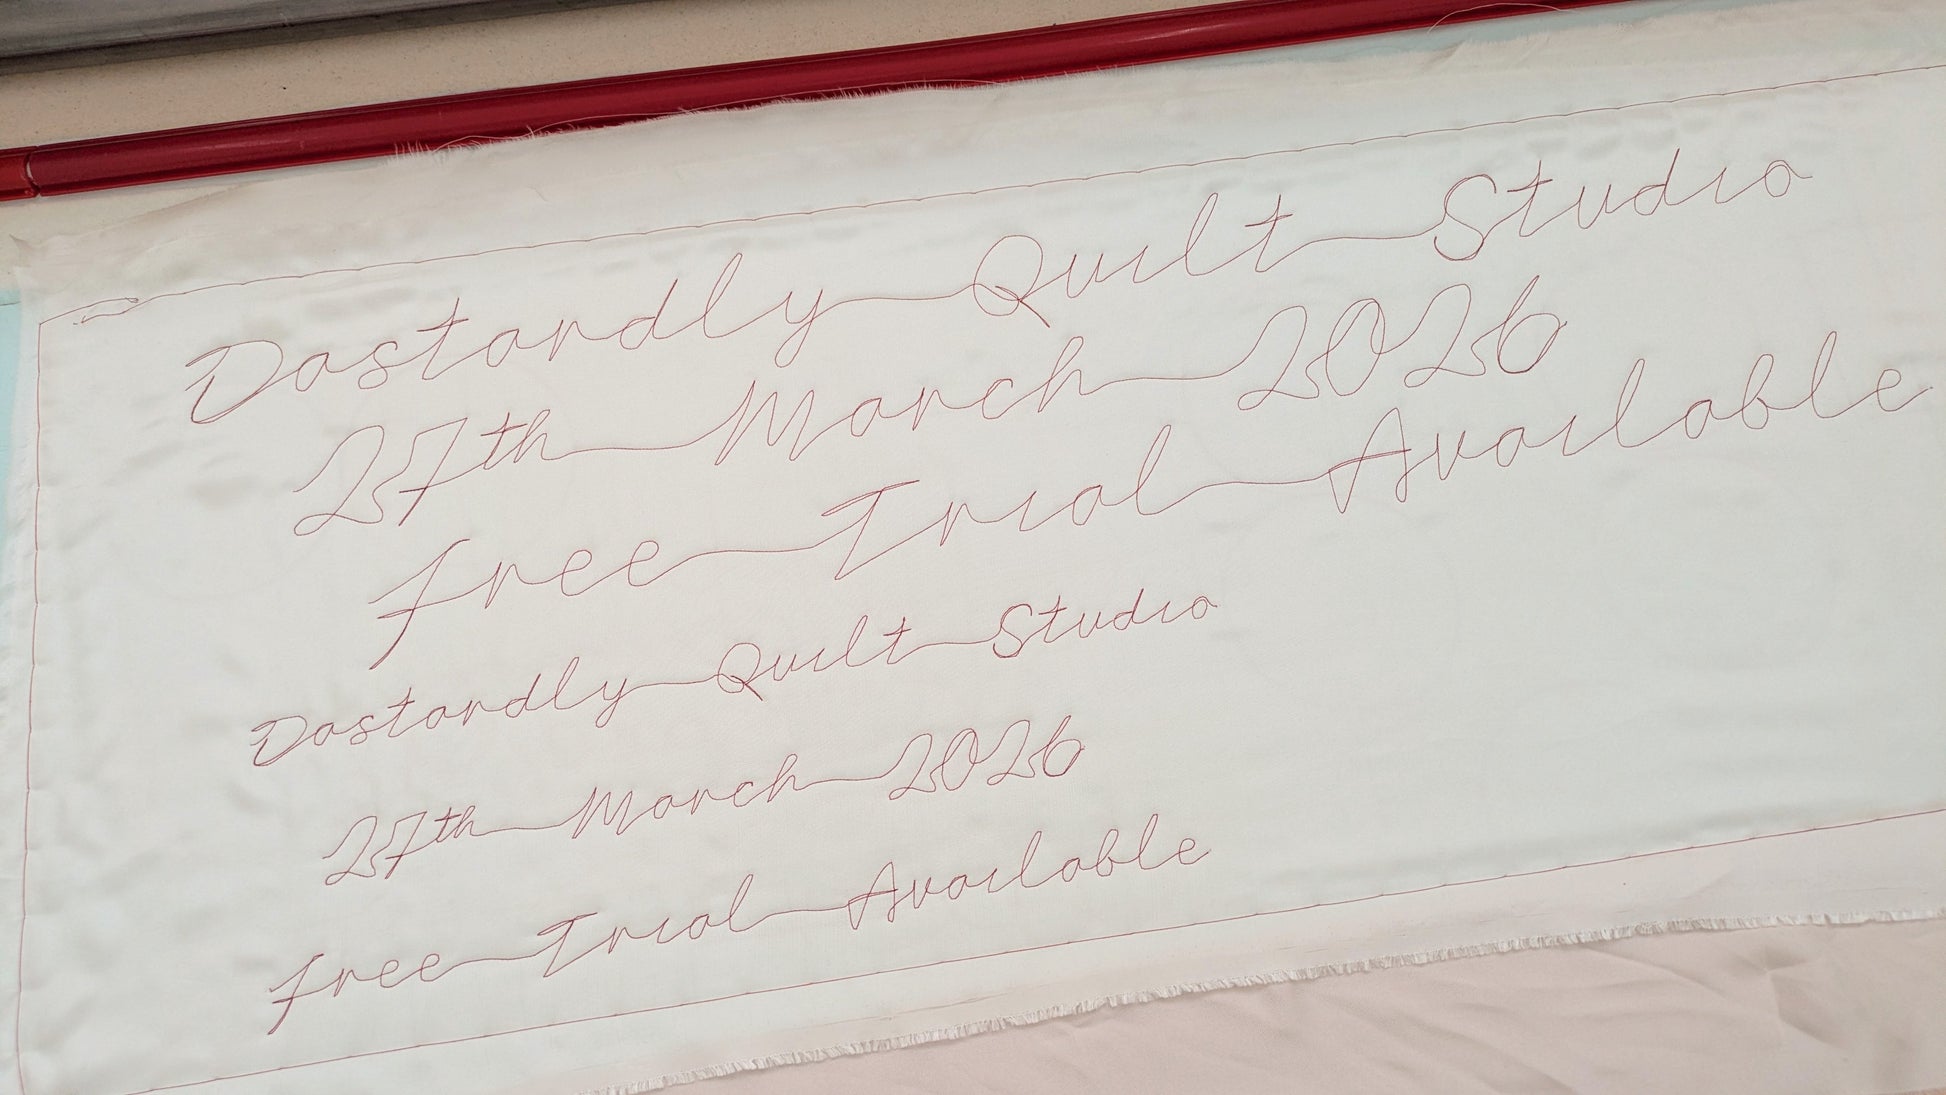 Dastardly Quilt Studio
27th March 2026
Free Trial Available
Dastardly Quilt Studio
27th March 2026
Free Trial Available